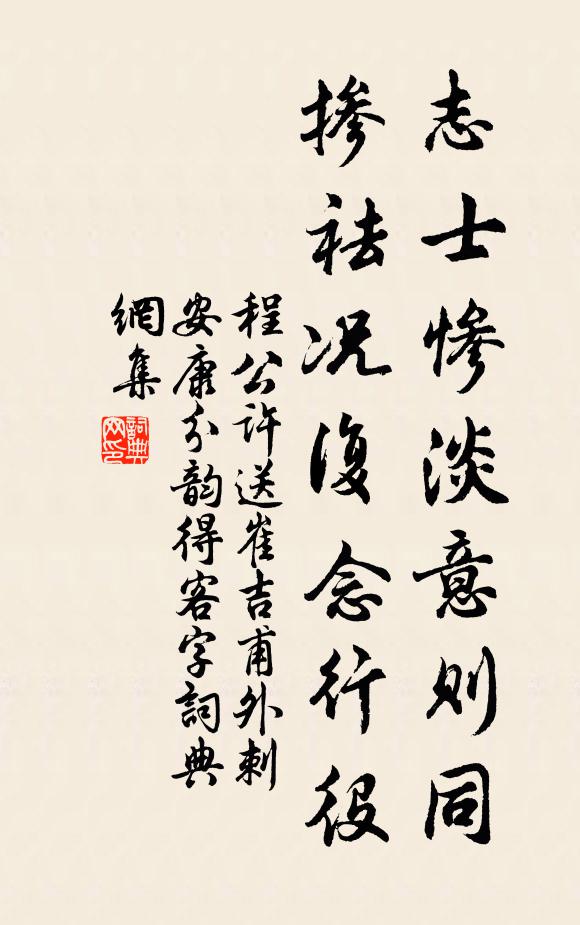 志士惨淡意则同
掺祛况復念行役
程公许送崔吉甫外刺
安康分韵得客字词典
網集
詞典
网印